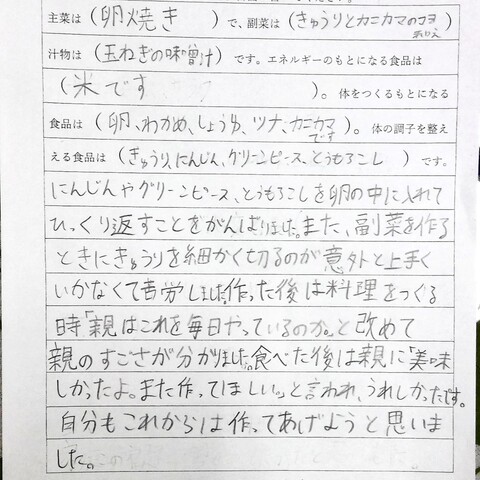 主菜は（卵焼き）で、副菜は（きゅうりとカニカマのマヨ和え）
汁物は（玉ねぎの味噌汁）です。エネルギーのもとになる食品は
（米です）。体をつくるもとになる
食品は（卵、わかめ、しょうゆ、ツナ、カニカマです）。体の調子を整え
える食品は（きゅうり、にんじん、グリーンピース、とうもろこし）です。
にんじんやグリーンピース、とうもろこしを卵の中に入れて
ひっくり返すことをがんばりました。また、副菜を作る
ときにきゅうりを細かく切るのが意外と上手く
いかなくて苦労しました。作った後は料理をつくる
時「親はこれを毎日やっているのか。」と改めて
親のすごさが分かりました。食べた後は親に「美味
しかったよ。また作ってほしい。」と言われ、うれしかったです。
自分もこれからは作ってあげようと思いま
した。